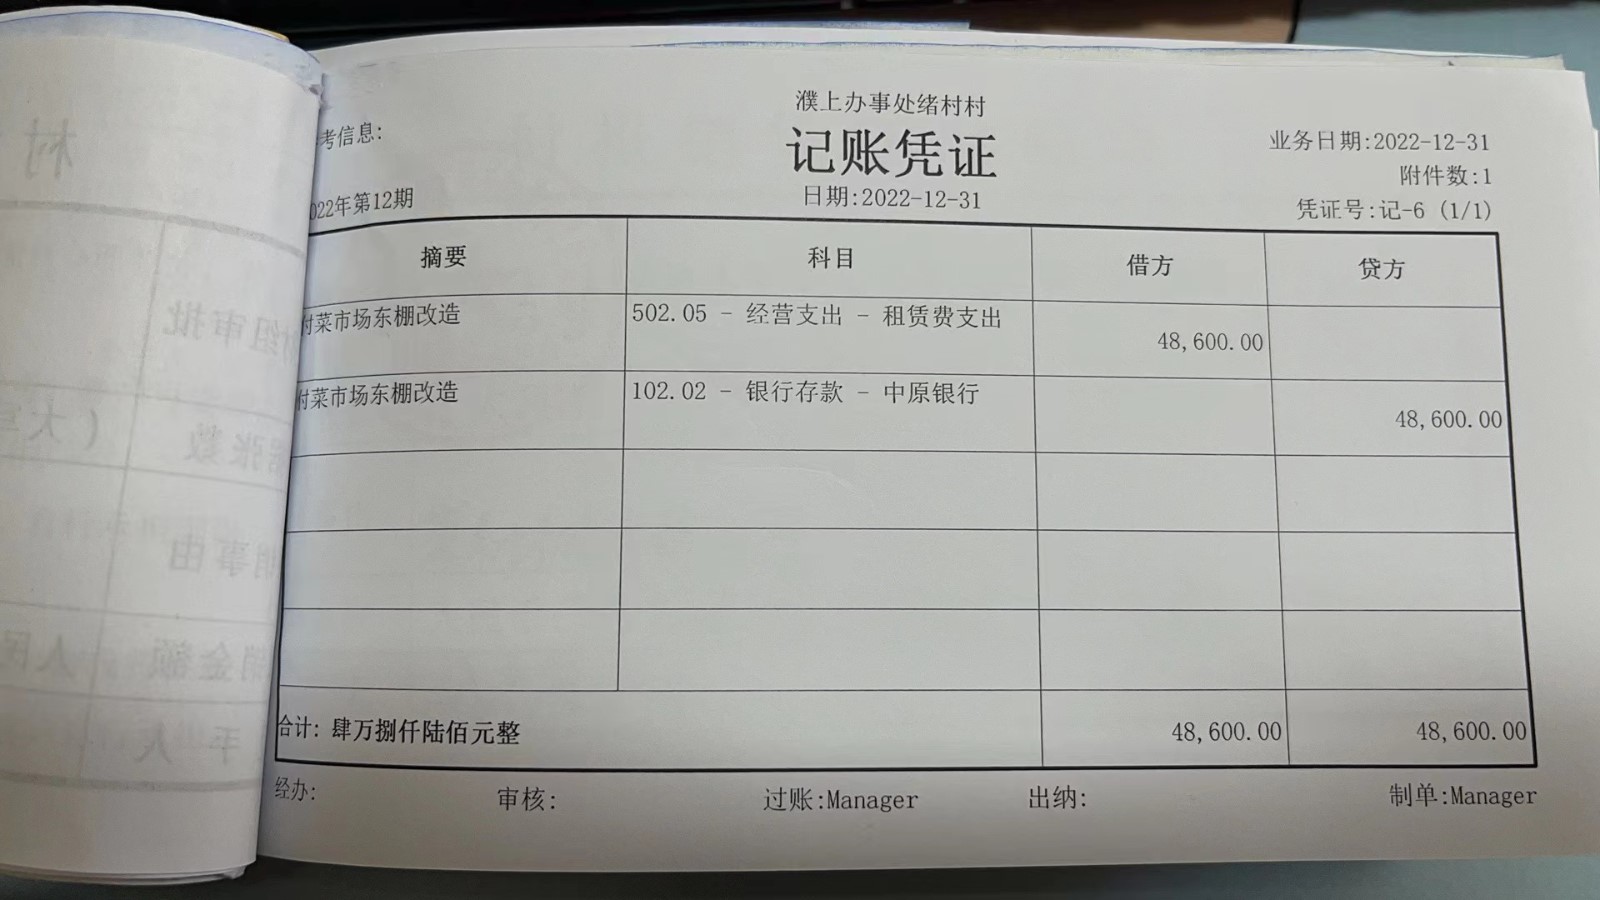 濮上办事处绪村村
考信息:
记账凭证
业务日期:2022-12-31
附件数:1
022年第12期
日期:2022-12-31
凭证号:记-6 (1/1)
摘要 科目 借方 贷方
付菜市场东棚改造 502.05 - 经营支出 - 租赁费支出 48,600.00
付菜市场东棚改造 102.02 - 银行存款 - 中原银行 48,600.00
合计: 肆万捌仟陆佰元整 48,600.00 48,600.00
经办: 审核: 过账:Manager 出纳: 制单:Manager